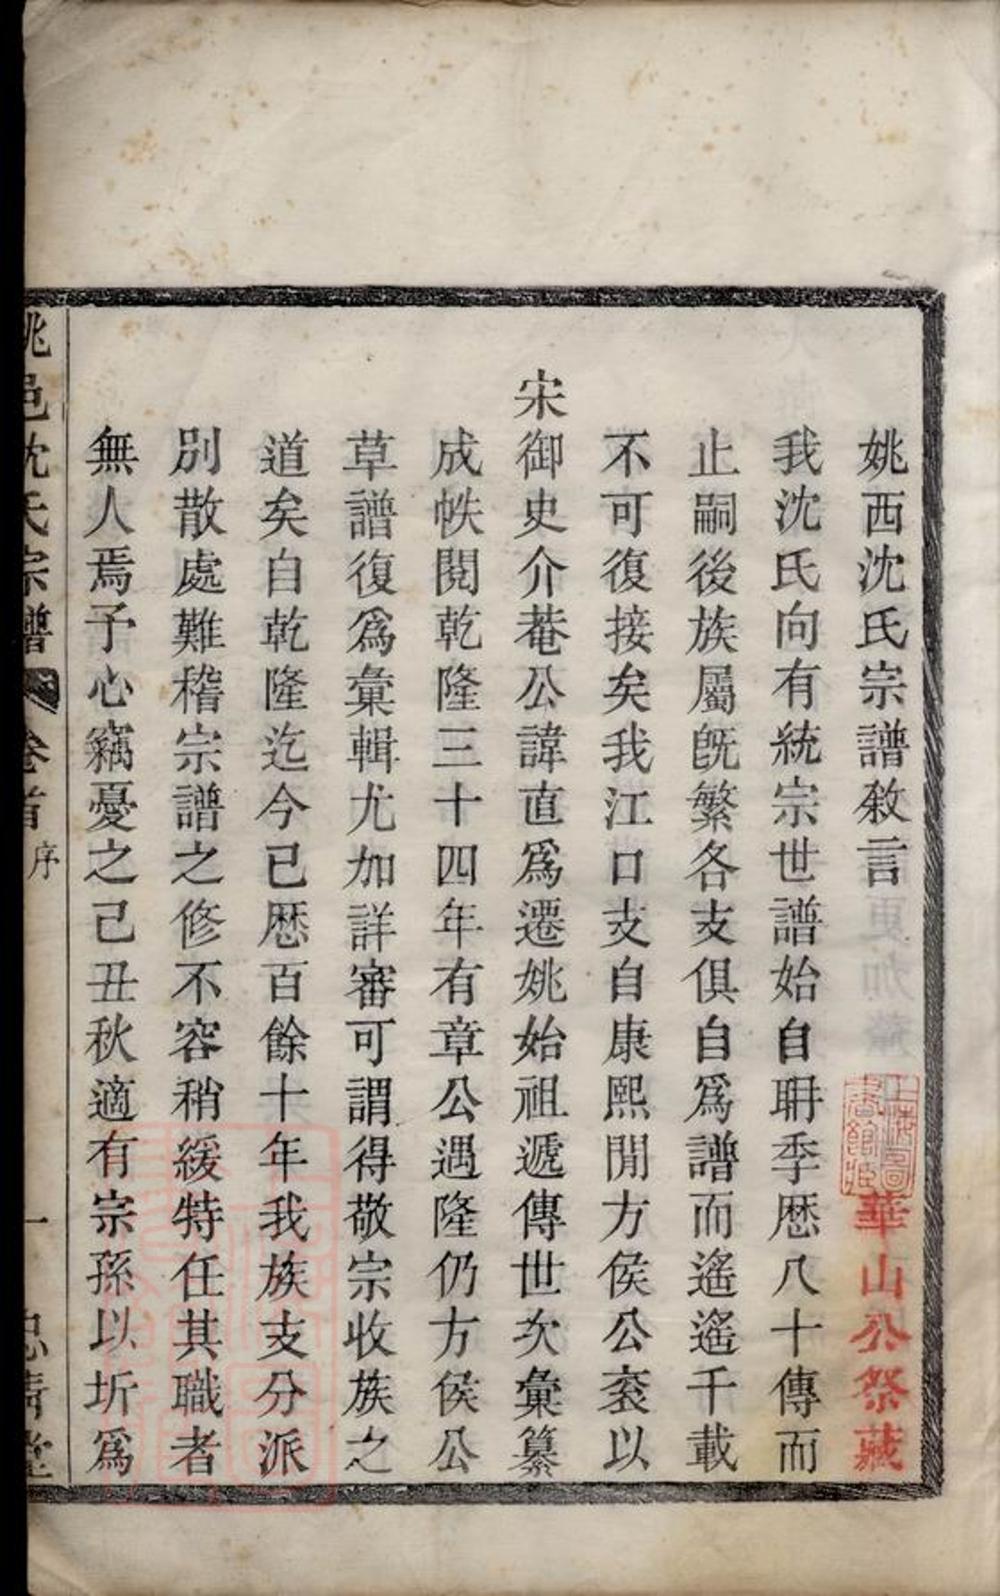 姚西沈氏宗譜敘言
華山公祭藏
上海圖書館藏
我沈氏向有統宗世譜始自聃季歷八十傳而
止嗣後族屬既繁各支俱自為譜而遙遙千載
不可復接矣我江口支自康熙閒方侯公衮以
宋御史介菴公諱直為遷姚始祖遞傳世次彙纂
成帙閱乾隆三十四年有章公遇隆仍方侯公
草譜復為彙輯尤加詳審可謂得敬宗收族之
道矣自乾隆迄今已歷百餘十年我族支分派
別散處難稽宗譜之修不容稍緩特任其職者
無人焉予心竊憂之己丑秋適有宗孫以圻為
姚邑沈氏宗譜 卷首 序 一 忠清堂